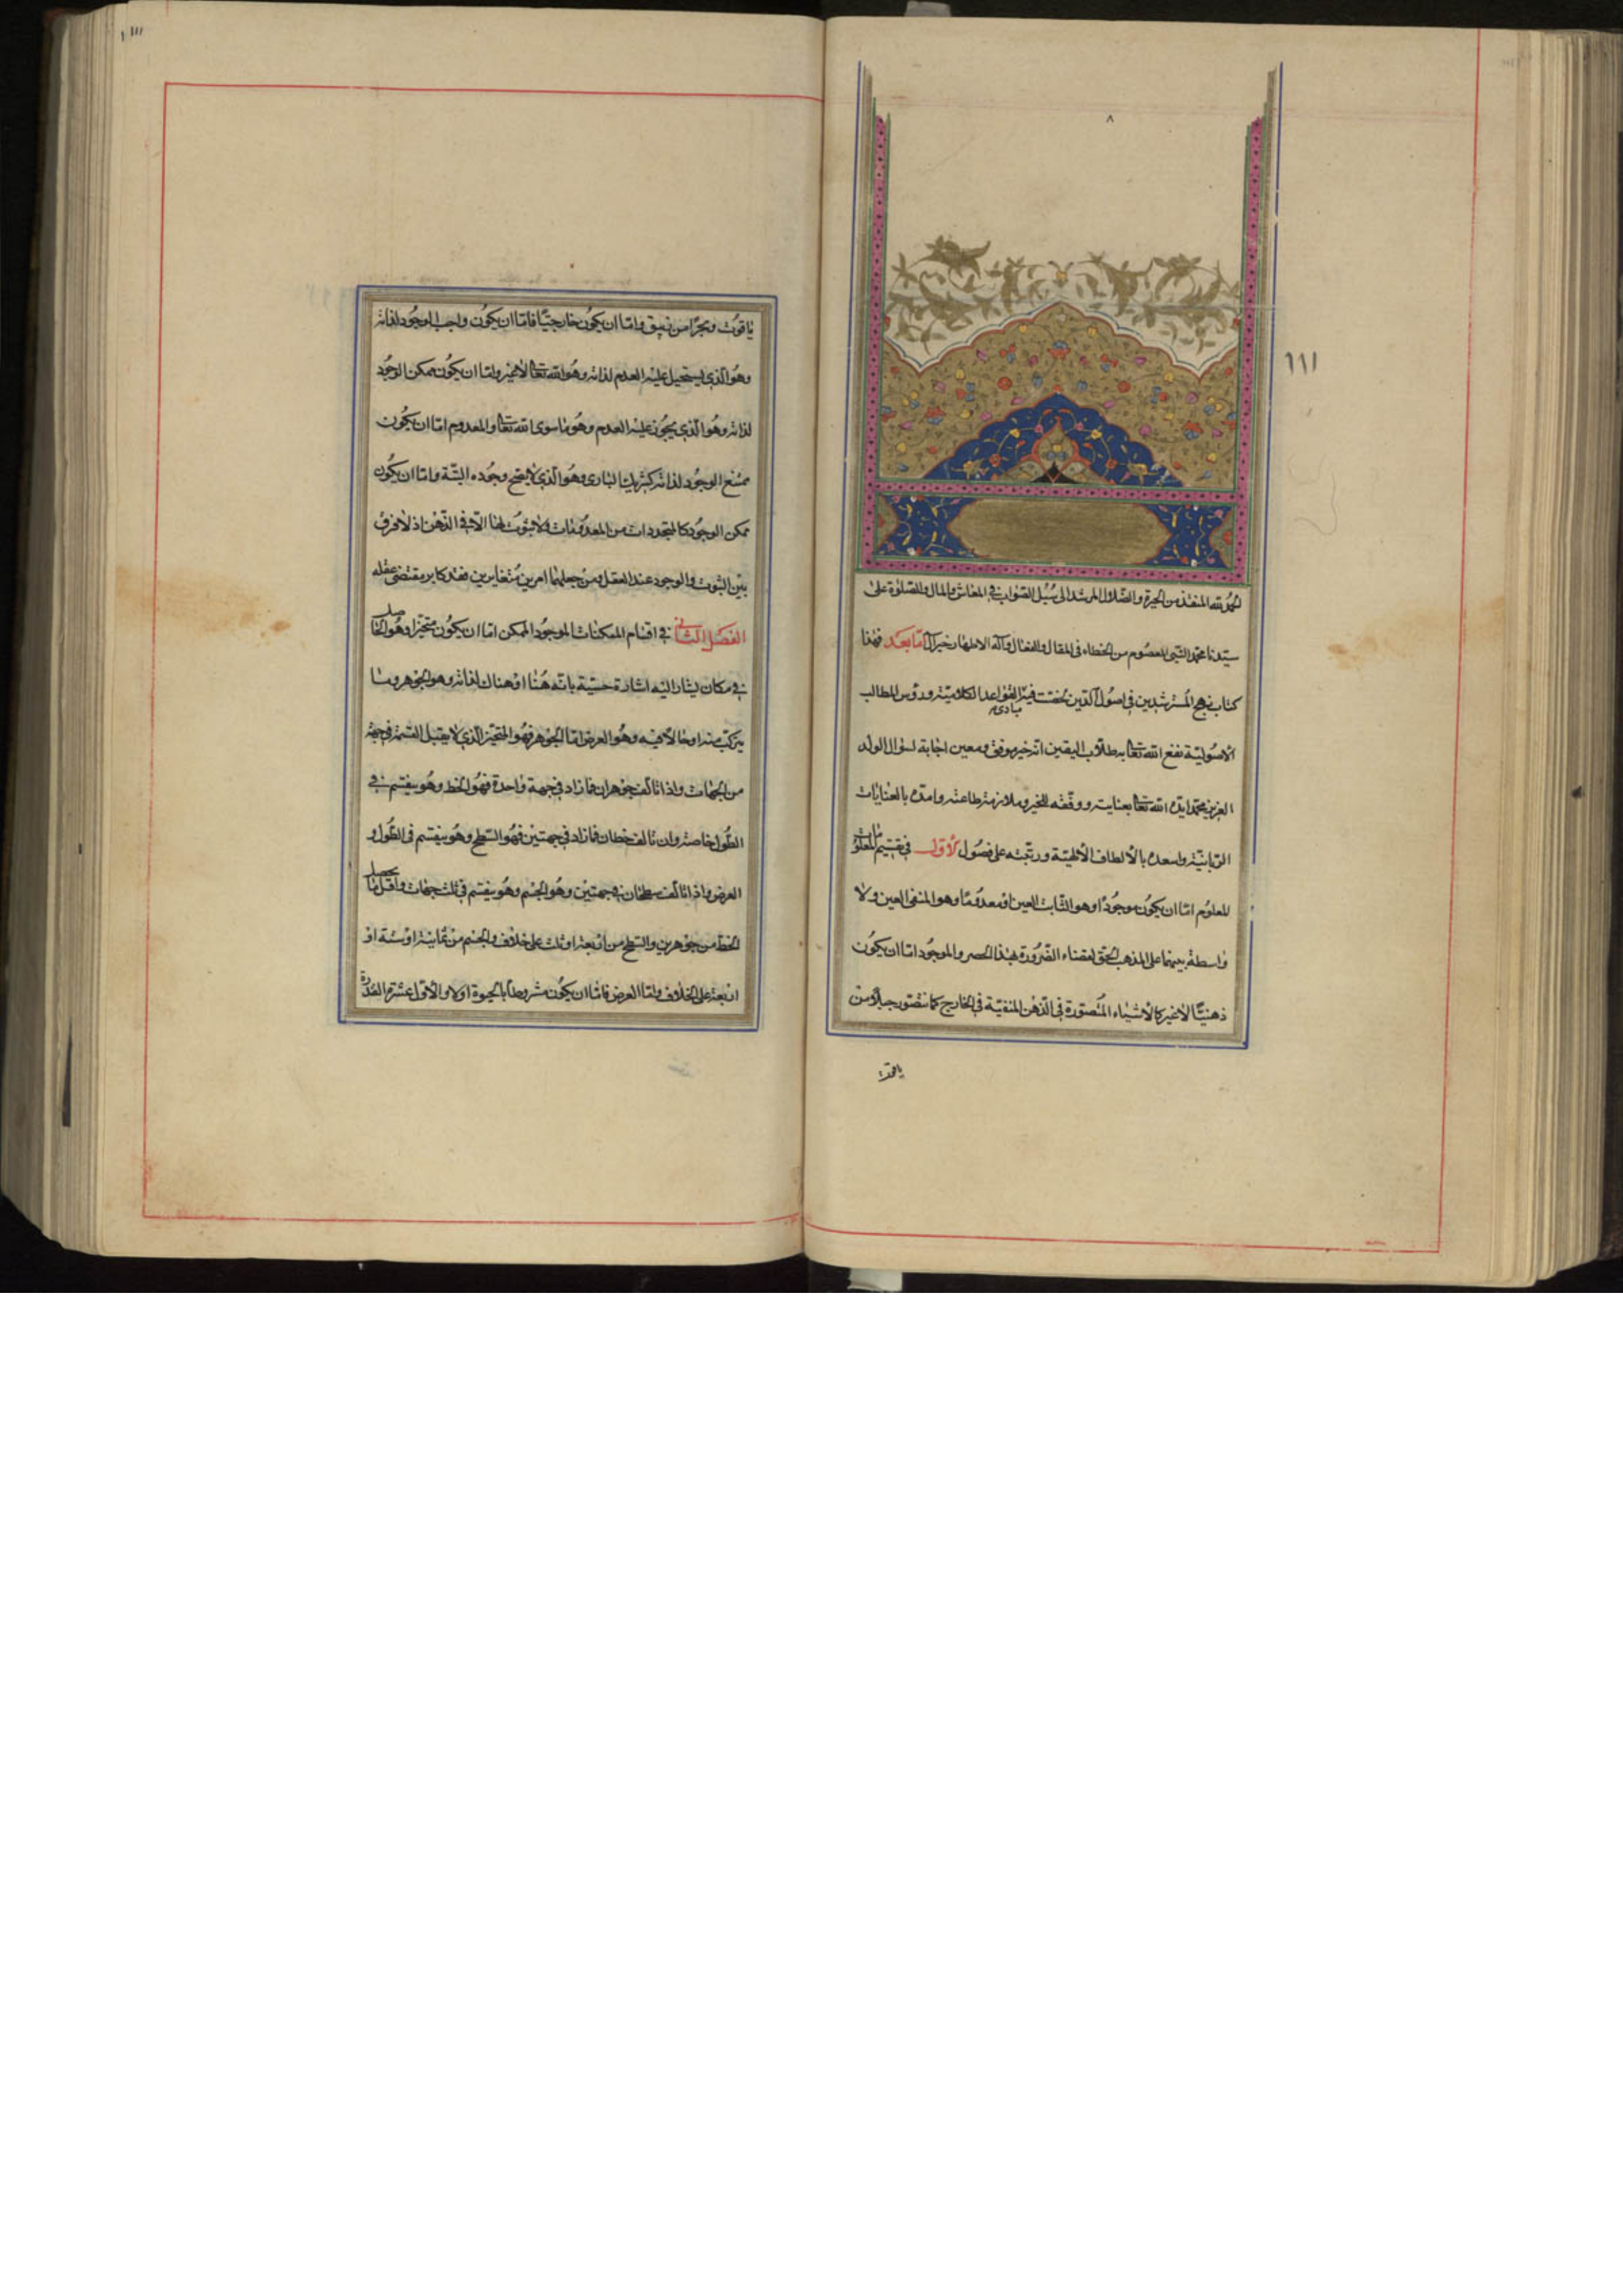 ٨
١١١
الحمد لله المنقذ من الحيرة والضلال المرشد الى سبل الصواب في المعاش والمال والصلوة على
سيدنا محمد النبي المعصوم من الخطاء في المقال والفعال وآله الاطهار خير آل اما بعد فهذا
كتاب نهج المسترشدين في اصول الدين لخصت فيه مبادى القواعد الكلامية ورؤس المطالب
الاصولية نفع الله تعالى به طلاب اليقين انه خير موفق ومعين اجابة لسؤال الولد
العزيز محمد ايده الله تعالى بعنايته ووفقه للخير وملازمة طاعته وامده بالعنايات
الربانية واسعده بالالطاف الالهية ورتبته على فصول الاول في تقسيم المعلومات
المعلوم اما ان يكون موجودا وهو الثابت العين او معدوما وهو المنفى العين ولا
واسطة بينهما على المذهب الحق لقضاء الضرورة بهذا الحصر والموجود اما ان يكون
ذهنيا لا غير كالاشياء المتصورة في الذهن المنفية في الخارج كما نتصور جبلا من
ياقوت
١١١
ياقوت وبحرا من زيبق واما ان يكون خارجيا فاما ان يكون واجب الوجود لذاته
وهو الذي يستحيل عليه العدم لذاته وهو الله تعالى لا غير واما ان يكون ممكن الوجود
لذاته وهو الذي يجوز عليه العدم وهو ما سوى الله تعالى والمعدوم اما ان يكون
ممتنع الوجود لذاته كشريك البارى وهو الذي لا يصح وجوده البتة واما ان يكون
ممكن الوجود كالمتجددات من المعدومات ولا ثبوت لها الا في الذهن اذ لا فرق
بين الثبوت والوجود عند العقل ومن جعلهما امرين متغايرين فقد كابر مقتضى عقله
الفصل الثاني في اقسام الممكنات الموجود الممكن اما ان يكون متحيزا وهو الحاصل
في مكان يشار اليه اشارة حسية بانه هنا او هناك لذاته وهو الجوهر وما
يتركب منه او حالا فيه وهو العرض اما الجوهر فهو المتحيز الذي لا يقبل القسمة في جهة
من الجهات واذا تالف جوهران فما زاد في جهة واحدة فهو الخط وهو ينقسم في
الطول خاصة وان تالف خطان فما زاد في جهتين فهو السطح وهو ينقسم في الطول و
العرض واذا تالف سطحان في جهتين وهو الجسم وهو ينقسم في ثلث جهات واقل ما يحصل
الخط من جوهرين والسطح من اربعة او ثلث على خلاف والجسم من ثمانية او ستة او
اربعة على الخلاف واما العرض فاما ان يكون مشروطا بالحيوة او لا والاول عشرة القدرة